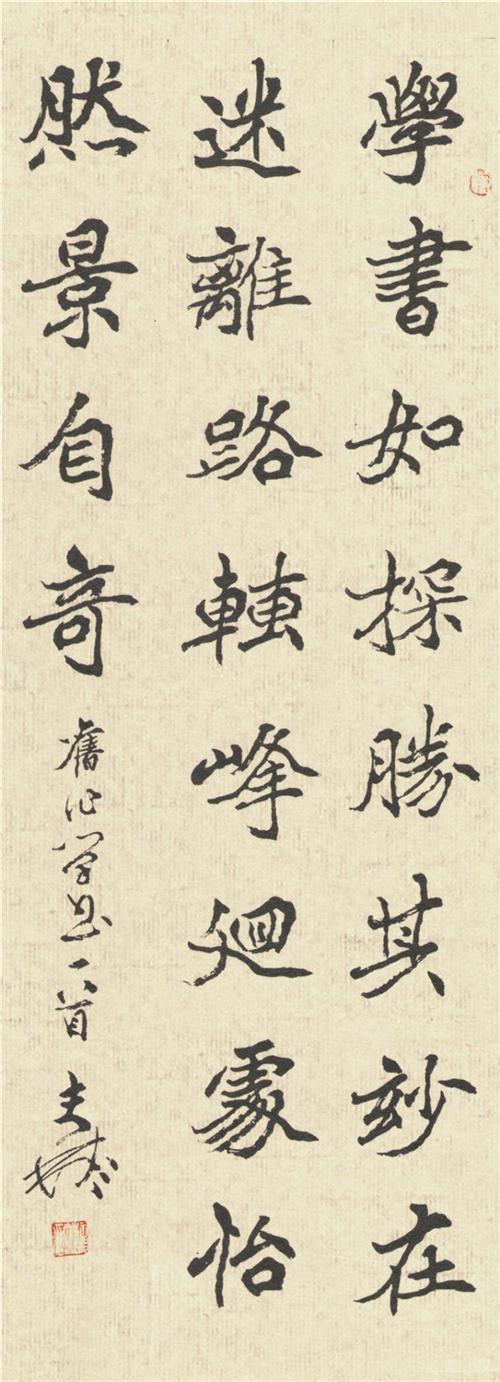 學書如探勝其妙在
迷離路轉峰迴處怡
然景自奇
舊作學書一首